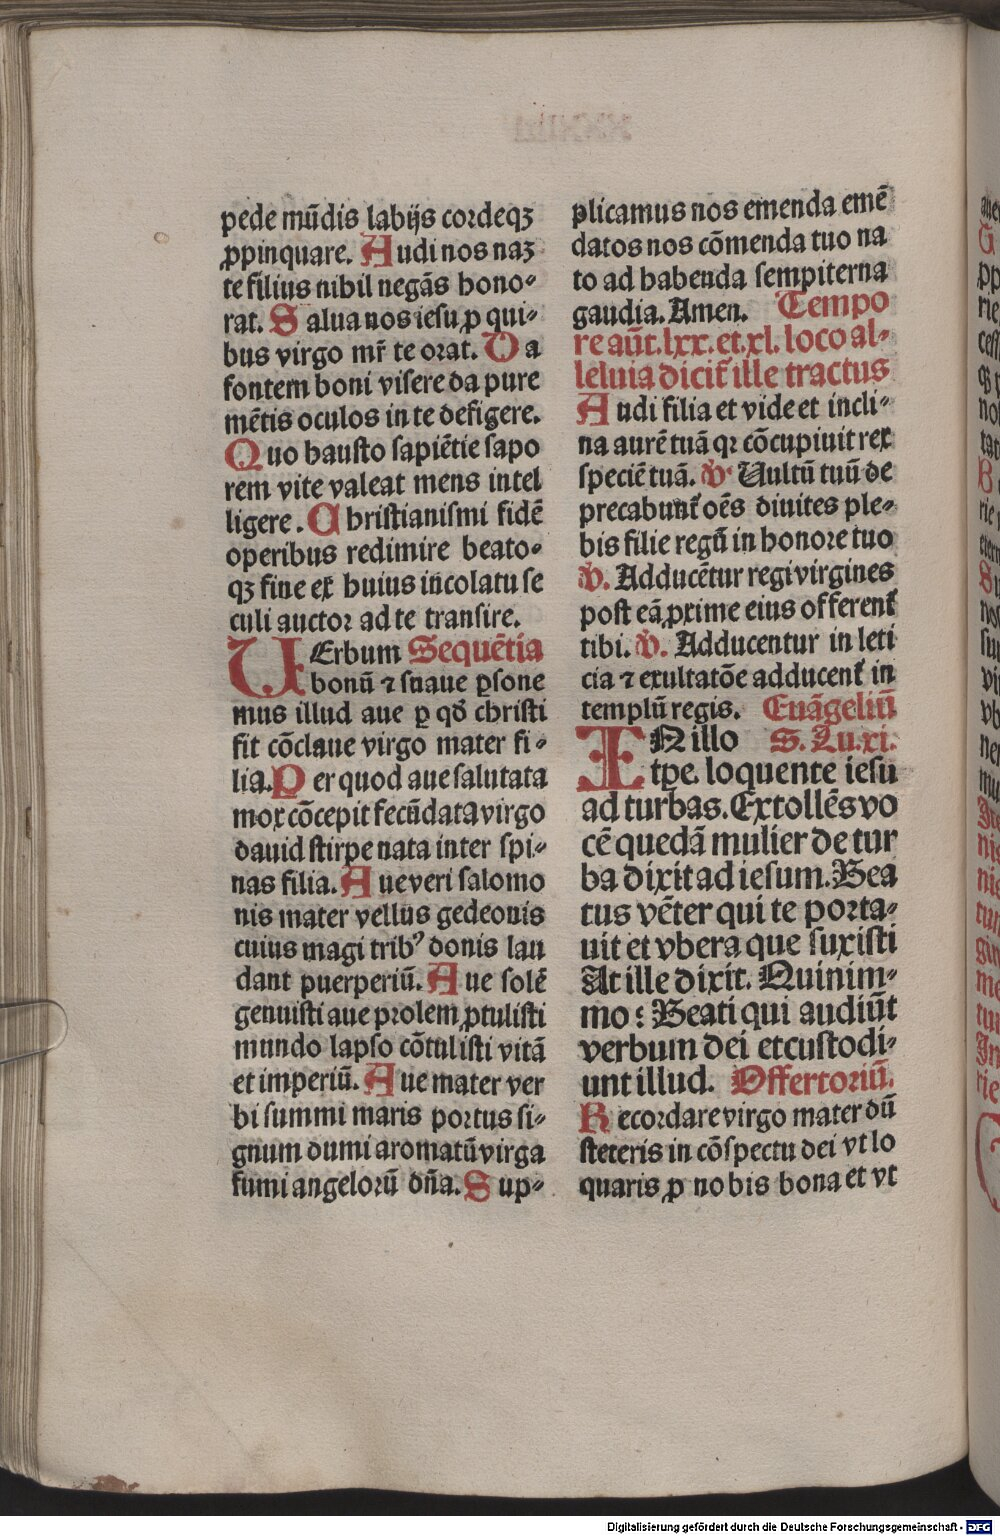 pede mūdis labijs cordeqꝫ
ꝓpinquare. Audi nos naꝫ
te filius nihil negās hono-
rat. Salua nos iesu ꝓ qui-
bus virgo mr̄ te orat. Da
fontem boni visere da pure
mētis oculos in te defigere.
Quo hausto sapiētie sapo
rem vite valeat mens intel
ligere. Christianismi fidē
operibus redimire beato-
qꝫ fine ex huius incolatu se
culi auctor ad te transire.
UErbum Sequētia
bonū ⁊ suaue ꝑsone
mus illud aue ꝑ qđ christi
fit cōclaue virgo mater fi-
lia. Per quod aue salutata
mox cōcepit fecūdata virgo
dauid stirpe nata inter spi-
nas filia. Aue veri salomo
nis mater vellus gedeonis
cuius magi tribꝰ donis lau
dant puerperiū. Aue solē
genuisti aue prolem ꝓtulisti
mundo lapso cōtulisti vitā
et imperiū. Aue mater ver
bi summi maris portus si-
gnum dumi aromatū virga
fumi angelorū dn̄a. Sup-
plicamus nos emenda emē
datos nos cōmenda tuo na
to ad habenda sempiterna
gaudia. Amen. Tempo
re aūt. lxx. et. xl. loco al-
leluia dicit᷑ ille tractus
Audi filia et vide et incli-
na aurē tuā qꝛ cōcupiuit rex
speciē tuā. ℣. Uultū tuū de
precabunt᷑ oēs diuites ple-
bis filie regū in honore tuo
℣. Adducētur regi virgines
post eā ꝓxime eius offerent᷑
tibi. ℣. Adducentur in leti
cia ⁊ exultatōe adducent᷑ in
templū regis. Euāgeliū
IN illo S. Lu. xi.
tꝑe. loquente iesu
ad turbas. Extollēs vo
cē quedā mulier de tur
ba dixit ad iesum. Bea
tus vēter qui te porta-
uit et vbera que suxisti
At ille dixit. Quinim-
mo: Beati qui audiūt
verbum dei et custodi-
unt illud. Offertoriū.
Recordare virgo mater dū
steteris in cōspectu dei vt lo
quaris ꝓ nobis bona et vt
Digitalisierung gefördert durch die Deutsche Forschungsgemeinschaft - DFG